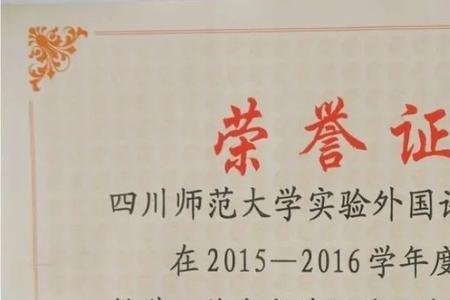 荣誉证
四川师范大学实验外国
在2015—2016学年度